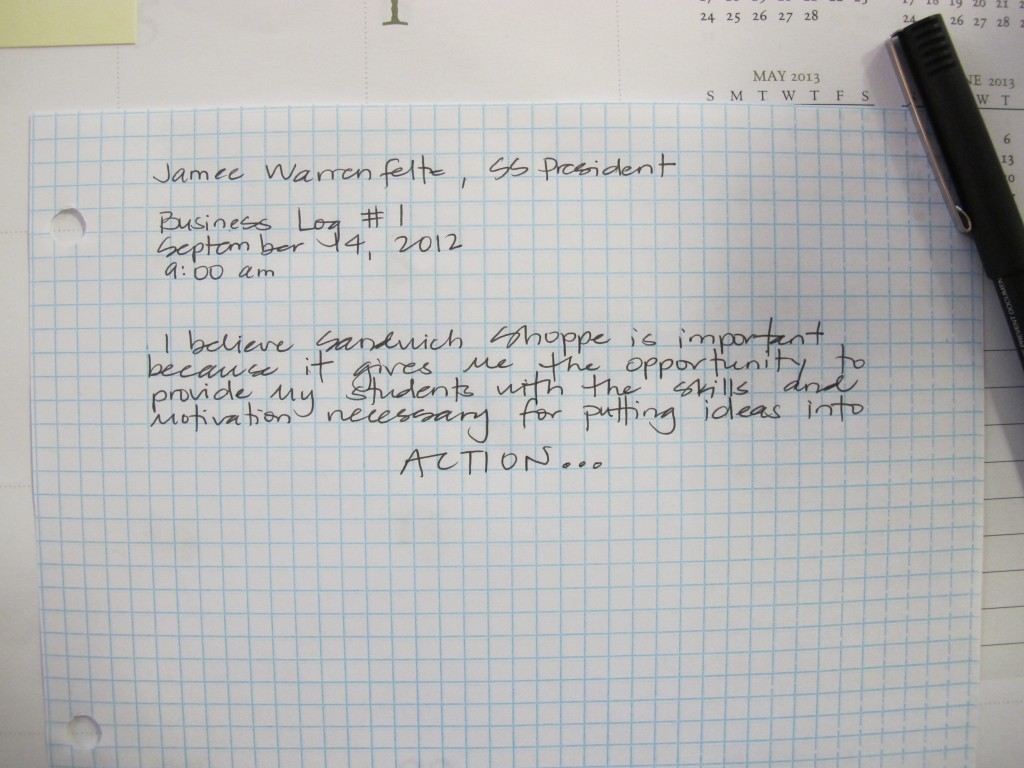 24 25 26 27 28
17 18 19 20 21
24 26 27 28
MAY 2013
S M T W T F S
NE 2013
W T
6
13
Jamee Warrenfeltz, SS President
Business Log # 1
September 14, 2012
9:00 am
I believe Sandwich Shoppe is important
because it gives me the opportunity to
provide my students with the skills and
motivation necessary for putting ideas into
ACTION...